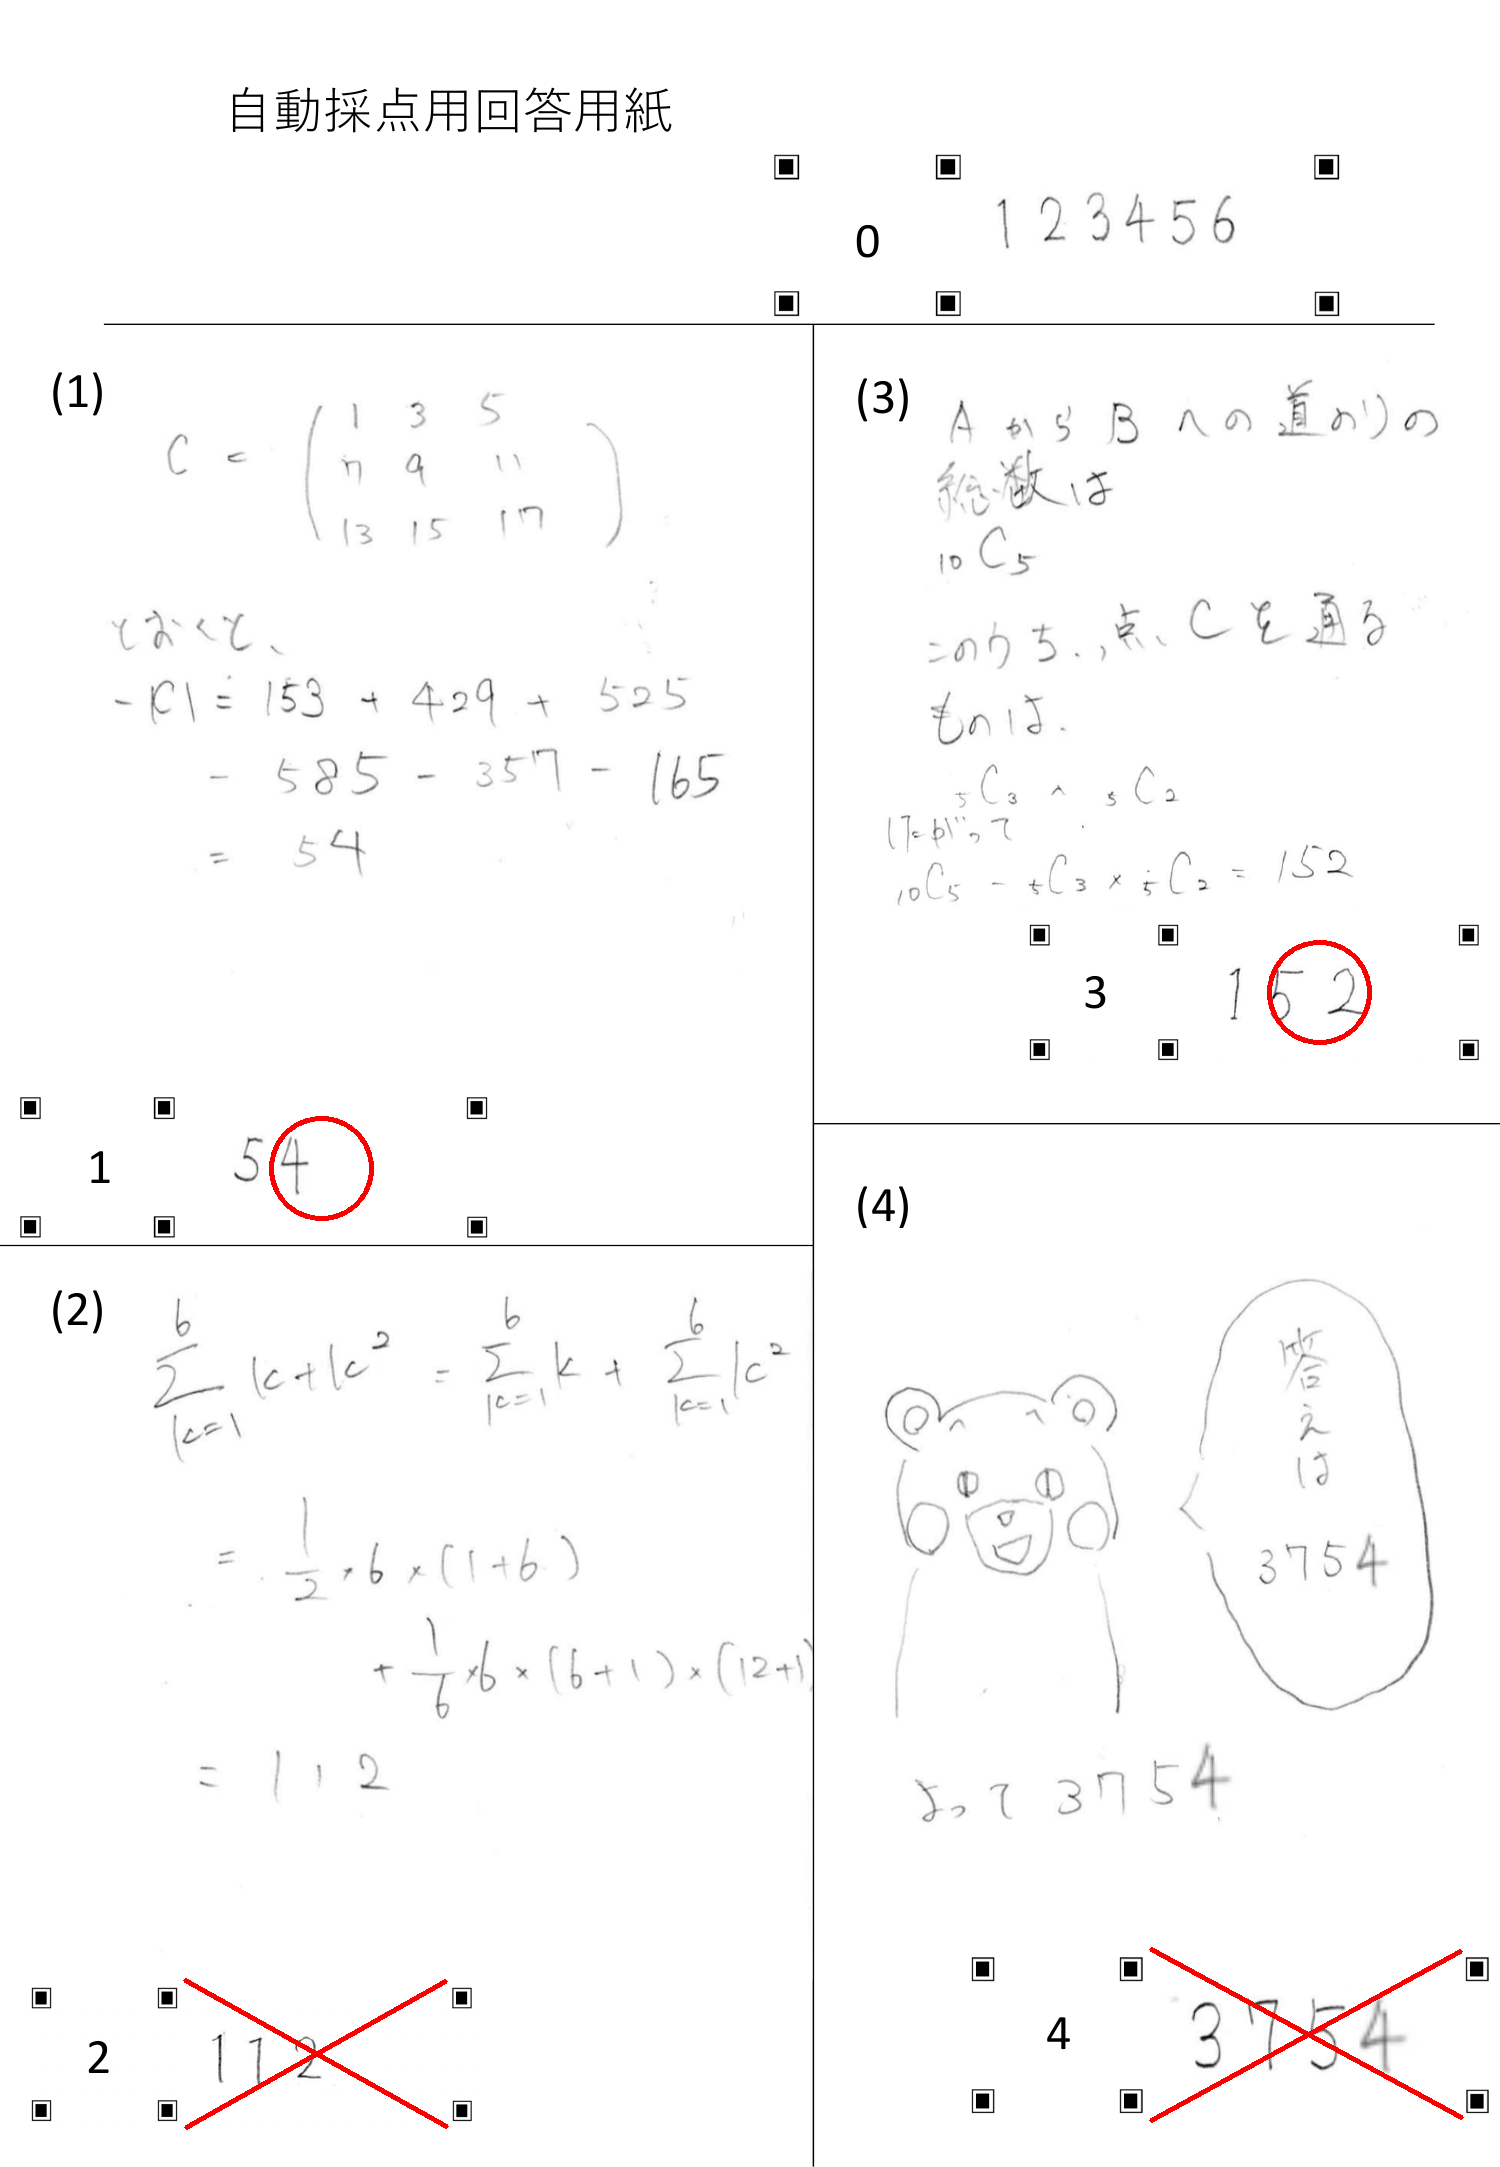 自動採点用回答用紙
0 123456
(1)
C = ( 1 3 5
7 9 11
13 15 17 )
とおくと、
-|C| = 153 + 429 + 525
- 585 - 357 - 165
= 54
1 54
(2)
6 6 6
∑ k+k² = ∑ k + ∑ k²
k=1 k=1 k=1
= 1/2 × 6 × (1+6)
+ 1/6 × 6 × (6+1) × (12+1)
= 112
2 112
(3)
AからBへの道のりの
総数は
₁₀C₅
このうち、点、Cを通る
ものは.
₅C₃ × ₅C₂
したがって
₁₀C₅ - ₅C₃ × ₅C₂ = 152
3 152
(4)
答えは
3754
よって 3754
4 3754